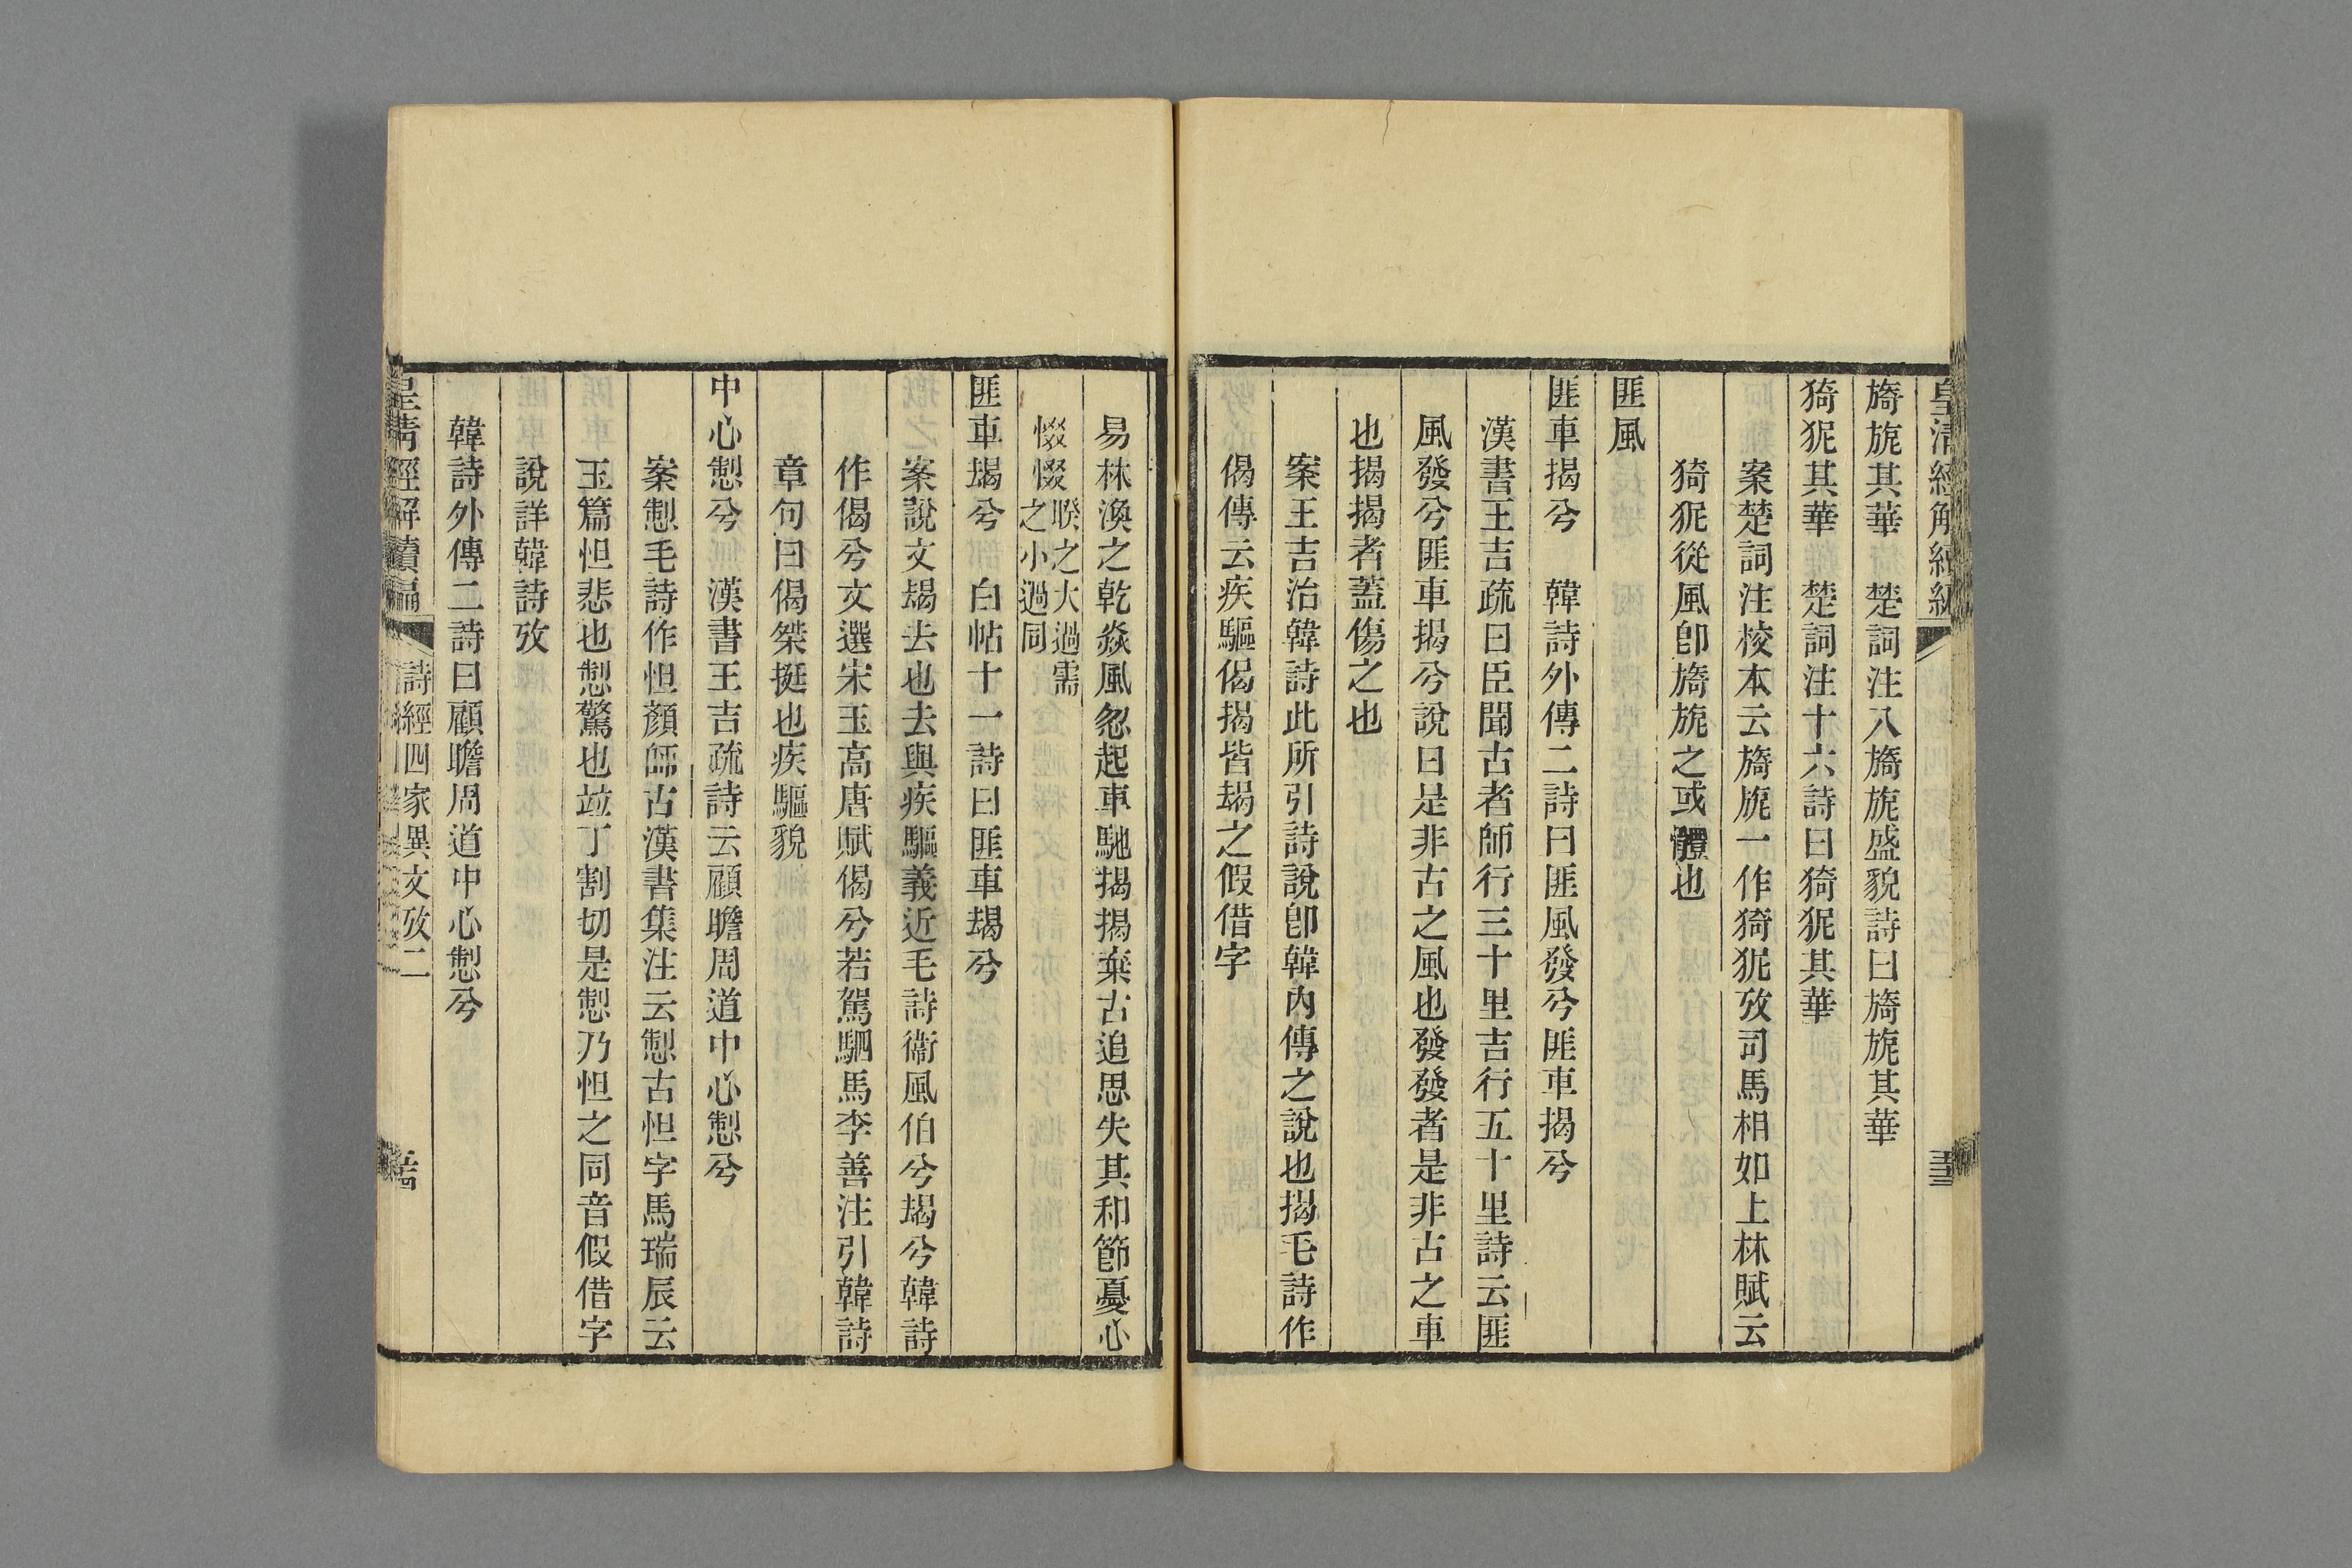 皇清經解續編
旖旎其華　楚詞注八旖旎盛貌詩曰旖旎其華
猗狔其華　楚詞注十六詩曰猗狔其華
案楚詞注校本云旖旎一作猗狔攷司馬相如上林賦云
猗狔從風卽旖旎之或體也
匪風
匪車揭兮　韓詩外傳二詩曰匪風發兮匪車揭兮
漢書王吉疏曰臣聞古者師行三十里吉行五十里詩云匪
風發兮匪車揭兮說曰是非古之風也發發者是非古之車
也揭揭者蓋傷之也
案王吉治韓詩此所引詩說卽韓內傳之說也揭毛詩作
偈傳云疾驅偈揭皆朅之假借字
易林渙之乾焱風忽起車馳揭揭棄古追思失其和節憂心
惙惙睽之大過需之小過同
匪車朅兮　白帖十一詩曰匪車朅兮
案說文朅去也去與疾驅義近毛詩衞風伯兮朅兮韓詩
作偈兮文選宋玉高唐賦偈兮若駕駟馬李善注引韓詩
章句曰偈桀挺也疾驅貌
中心㤠兮　漢書王吉疏詩云顧瞻周道中心㤠兮
案㤠毛詩作怛顏師古漢書集注云㤠古怛字馬瑞辰云
玉篇怛悲也㤠驚也竝丁割切是㤠乃怛之同音假借字
說詳韓詩攷
韓詩外傳二詩曰顧瞻周道中心㤠兮
皇清經解續編　詩經四家異文攷二